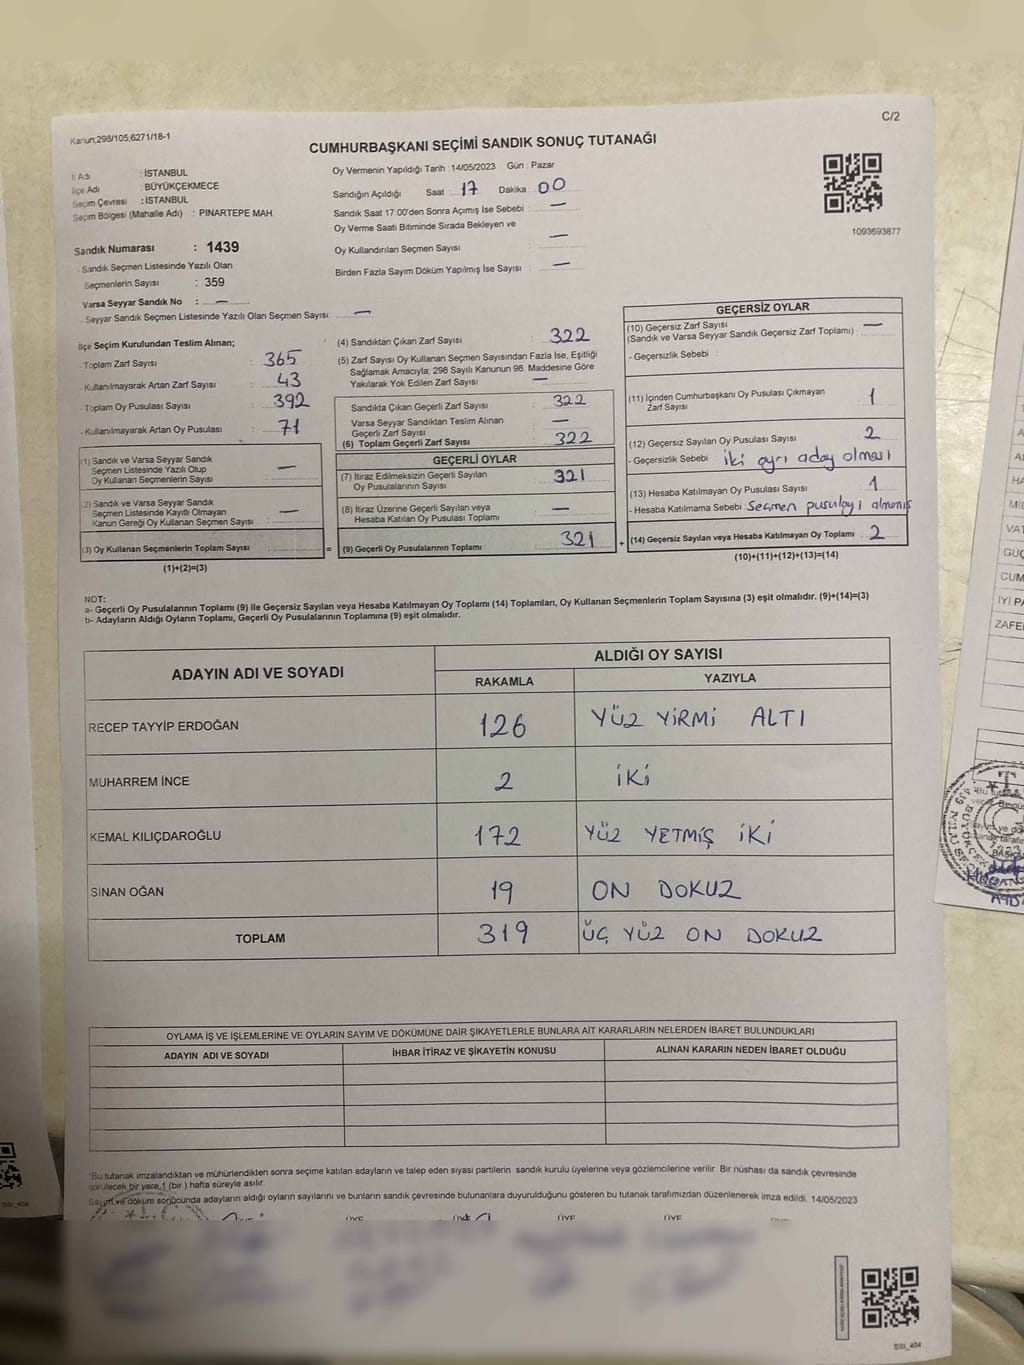 Kanun;298/105;6271/18-1
C/2
CUMHURBAŞKANI SEÇİMİ SANDIK SONUÇ TUTANAĞI
İl Adı : İSTANBUL
İlçe Adı : BÜYÜKÇEKMECE
Seçim Çevresi : İSTANBUL
Seçim Bölgesi (Mahalle Adı) : PINARTEPE MAH.
Oy Vermenin Yapıldığı Tarih : 14/05/2023 Gün : Pazar
Sandığın Açıldığı Saat : 17 Dakika : 00
Sandık Saat 17:00'den Sonra Açımış İse Sebebi : —
Oy Verme Saati Bitiminde Sırada Bekleyen ve
Oy Kullandırılan Seçmen Sayısı : —
Birden Fazla Sayım Döküm Yapılmış İse Sayısı : —
1093693877
Sandık Numarası : 1439
- Sandık Seçmen Listesinde Yazılı Olan
Seçmenlerin Sayısı : 359
Varsa Seyyar Sandık No : —
- Seyyar Sandık Seçmen Listesinde Yazılı Olan Seçmen Sayısı: —
İlçe Seçim Kurulundan Teslim Alınan;
- Toplam Zarf Sayısı : 365
- Kullanılmayarak Artan Zarf Sayısı : 43
- Toplam Oy Pusulası Sayısı : 392
- Kullanılmayarak Artan Oy Pusulası : 71
(1) Sandık ve Varsa Seyyar Sandık
Seçmen Listesinde Yazılı Olup
Oy Kullanan Seçmenlerin Sayısı : —
(2) Sandık ve Varsa Seyyar Sandık
Seçmen Listesinde Kayıtlı Olmayan
Kanun Gereği Oy Kullanan Seçmen Sayısı : —
(3) Oy Kullanan Seçmenlerin Toplam Sayısı :
(1)+(2)=(3)
(4) Sandıktan Çıkan Zarf Sayısı : 322
(5) Zarf Sayısı Oy Kullanan Seçmen Sayısından Fazla İse, Eşitliği
Sağlamak Amacıyla; 298 Sayılı Kanunun 98. Maddesine Göre
Yakılarak Yok Edilen Zarf Sayısı : —
Sandıkta Çıkan Geçerli Zarf Sayısı : 322
Varsa Seyyar Sandıktan Teslim Alınan
Geçerli Zarf Sayısı : —
(6) Toplam Geçerli Zarf Sayısı : 322
GEÇERLİ OYLAR
(7) İtiraz Edilmeksizin Geçerli Sayılan
Oy Pusulalarının Sayısı : 321
(8) İtiraz Üzerine Geçerli Sayılan veya
Hesaba Katılan Oy Pusulası Toplamı : —
= (9) Geçerli Oy Pusulalarının Toplamı : 321
GEÇERSİZ OYLAR
(10) Geçersiz Zarf Sayısı
(Sandık ve Varsa Seyyar Sandık Geçersiz Zarf Toplamı) : —
- Geçersizlik Sebebi :
(11) İçinden Cumhurbaşkanı Oy Pusulası Çıkmayan
Zarf Sayısı : 1
(12) Geçersiz Sayılan Oy Pusulası Sayısı : 2
- Geçersizlik Sebebi : iki ayrı aday olması
(13) Hesaba Katılmayan Oy Pusulası Sayısı : 1
- Hesaba Katılmama Sebebi : Seçmen pusulayı almamış
+ (14) Geçersiz Sayılan veya Hesaba Katılmayan Oy Toplamı : 2
(10)+(11)+(12)+(13)=(14)
NOT:
a- Geçerli Oy Pusulalarının Toplamı (9) ile Geçersiz Sayılan veya Hesaba Katılmayan Oy Toplamı (14) Toplamları, Oy Kullanan Seçmenlerin Toplam Sayısına (3) eşit olmalıdır. (9)+(14)=(3)
b- Adayların Aldığı Oyların Toplamı, Geçerli Oy Pusulalarının Toplamına (9) eşit olmalıdır.
ADAYIN ADI VE SOYADI
ALDIĞI OY SAYISI
RAKAMLA YAZIYLA
RECEP TAYYİP ERDOĞAN 126 YÜZ YİRMİ ALTI
MUHARREM İNCE 2 İKİ
KEMAL KILIÇDAROĞLU 172 YÜZ YETMİŞ İKİ
SİNAN OĞAN 19 ON DOKUZ
TOPLAM 319 ÜÇ YÜZ ON DOKUZ
OYLAMA İŞ VE İŞLEMLERİNE VE OYLARIN SAYIM VE DÖKÜMÜNE DAİR ŞİKAYETLERLE BUNLARA AİT KARARLARIN NELERDEN İBARET BULUNDUKLARI
ADAYIN ADI VE SOYADI İHBAR İTİRAZ VE ŞİKAYETİN KONUSU ALINAN KARARIN NEDEN İBARET OLDUĞU
*Bu tutanak imzalandıktan ve mühürlendikten sonra seçime katılan adayların ve talep eden siyasi partilerin sandık kurulu üyelerine veya gözlemcilerine verilir. Bir nüshası da sandık çevresinde
görülecek bir yere 1 (bir) hafta süreyle asılır.
Sayım ve döküm sonucunda adayların aldığı oyların sayılarını ve bunların sandık çevresinde bulunanlara duyurulduğunu gösteren bu tutanak tarafımızdan düzenlenerek imza edildi. 14/05/2023
ÜYE ÜYE ÜYE ÜYE
SSI_404
SSI_404
VAT
CUM
İYİ PA
ZAFE